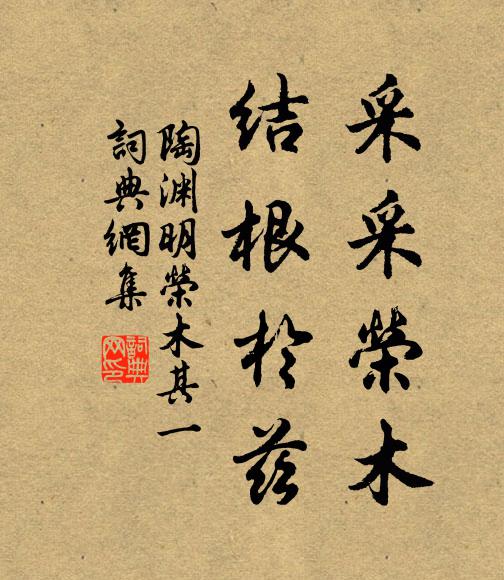 采采榮木
結根於茲
陶渊明榮木其一
詞典網集
詞典
网印